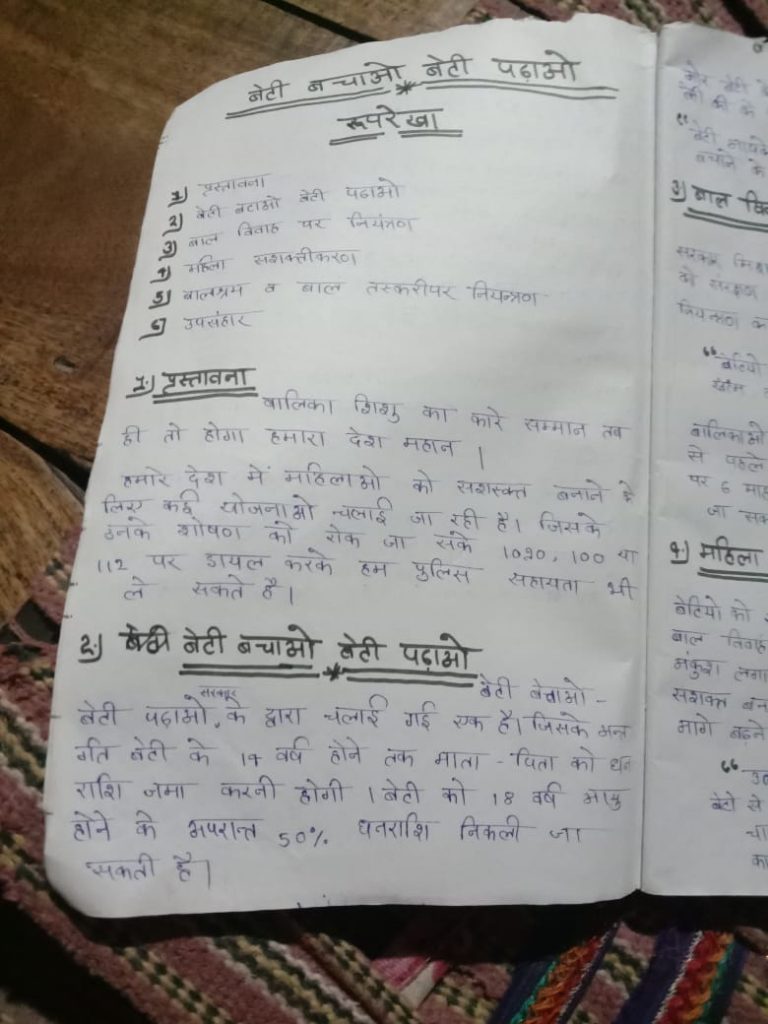 बेटी बचाओ * बेटी पढ़ाओ
रूपरेखा
1) प्रस्तावना
2) बेटी बचाओ बेटी पढाओ
3) बाल विवाह पर नियंत्रण
4) महिला सशक्तीकरण
5) बालश्रम व बाल तस्करीपर नियन्त्रण
6) उपसंहार
1.) प्रस्तावना
बालिका शिशु का करे सम्मान तब
ही तो होगा हमारा देश महान |
हमारे देश में महिलाओ को सशक्त बनाने के
लिए कई योजनाओ चलाई जा रही है। जिसके
उनके शोषण को रोक जा सके 1090, 100 या
112 पर डायल करके हम पुलिस सहायता भी
ले सकते है।
2.) बेटी बचाओ * बेटी पढ़ाओ
बेटी बेचाओ -
बेटी पढ़ाओ, सरकार के द्वारा चलाई गई एक है। जिसके अन्त
र्गत बेटी के 14 वर्ष होने तक माता - पिता को धन
राशि जमा करनी होगी । बेटी को 18 वर्ष आयु
होने के अपरान्त 50% धनराशि निकली जा
सकती है।
और बेटी
की की के
बचाने के
3) बाल वि
सरकार
को संरक्षण
नियन्त्रण क
"बेटियो
बालिकाओ
से पहले
पर 6 माह
जा सक
4) महिला
बेटियो को
बाल विवाह
अंकुश लगा
सशक्त बन
आगे बढ़ने
बेटो से
चा
का